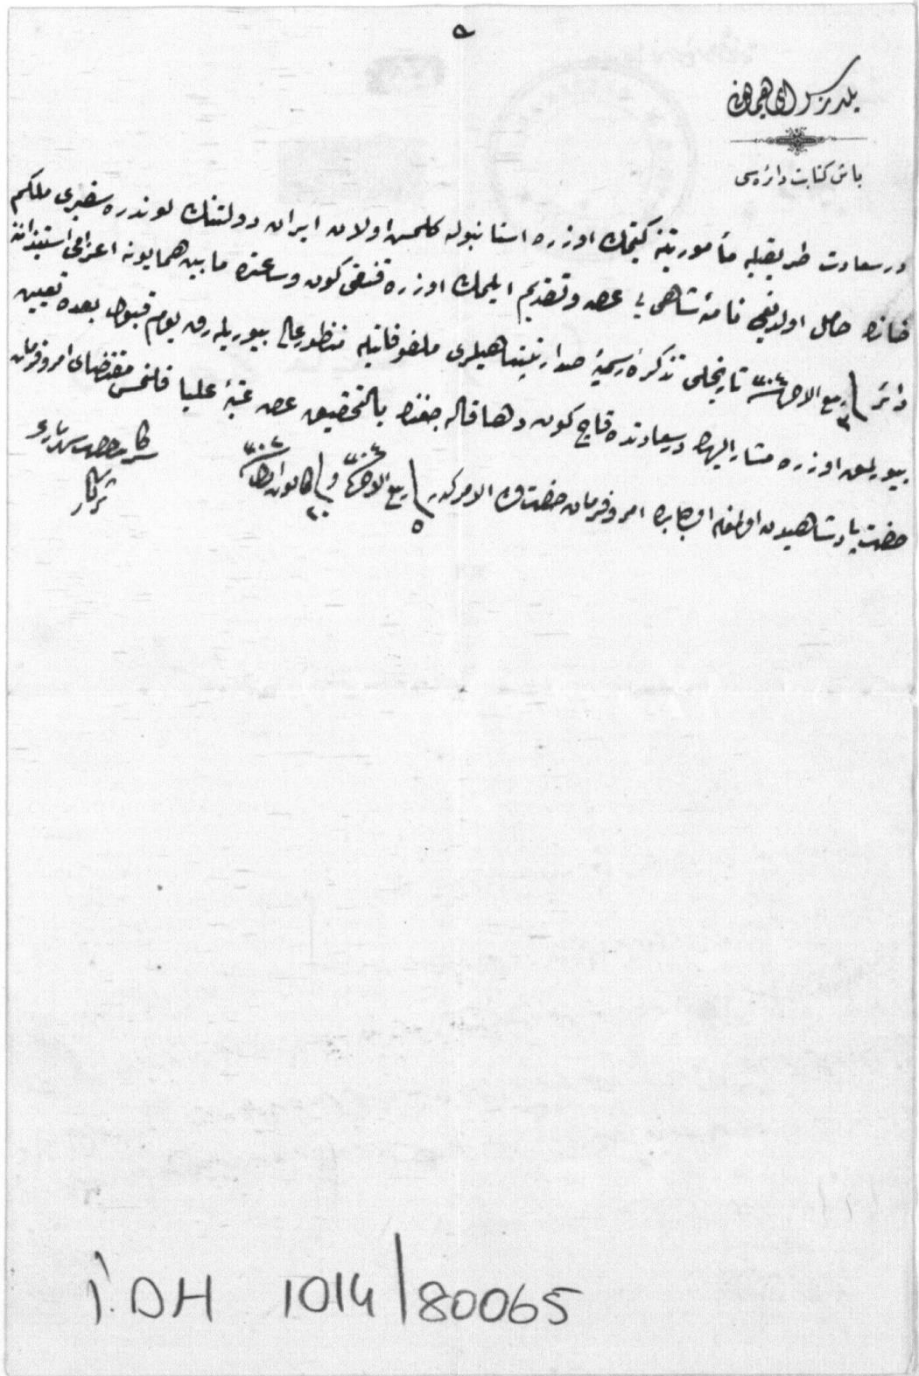 ٥
يلديز سراى همايونى
باش كتابت دائره‌سى
درسعادت طريقيله مأموريتنه كيتمك اوزره استانبوله كلمش اولان ايران دولتنك لوندره سفيرى ملكم
خانك حامل اولديغى نامۀ شاهى‌يى عرض و تقديم ايلمك اوزره قنغى كون و ساعتده مابين همايونه اعزامى استيذاننه
دائر ٣ ربيع الاخر سنه ٣٠٤ تاريخلى تذكرۀ رسميۀ صدارتپناهيلرى ملفوفاتيله منظور عالى بيوريله‌رق يوم قبول بعده تعيين
بيورلمق اوزره مشار اليهك درسعادتده قاچ كون دها قاله‌جغنك بالتحقيق عرض عتبۀ عليا قلنمسى مقتضاى امر و فرمان
حضرت پادشاهيدن اولمغله اولبابده امر و فرمان حضرت ولى الامركدر ٥ ربيع الاخر سنه ٣٠٤ و ٢٠ كانون اول سنه ٣٠٢
سركاتب حضرت شهريارى
ثريا
İ.DH 1014/80065